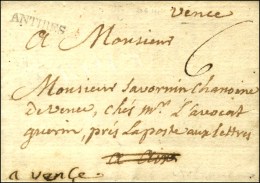 vence
ANTIBES
6
A Monsieur
Monsieur Savornin Chanoine
De Vence, chés Mr. L'avocat
guerin, prés la poste aux lettres
a Aix
a vençe